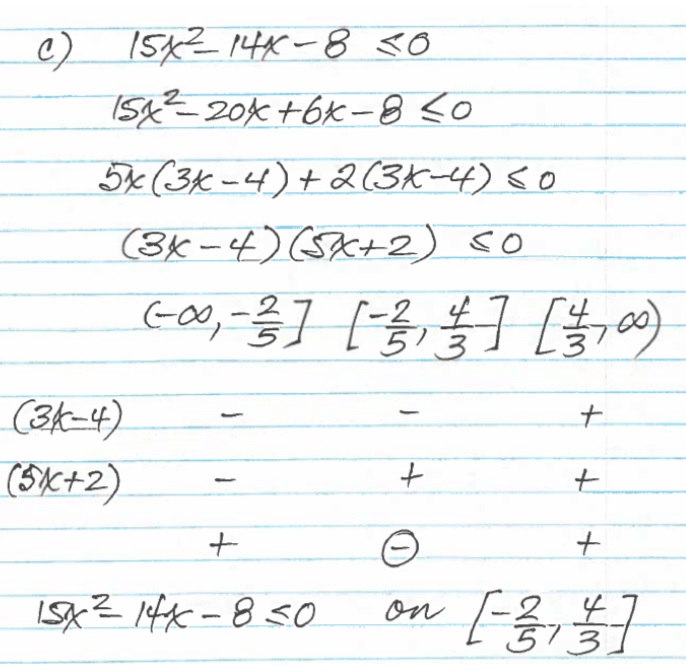 c) 15x² - 14x - 8 ≤ 0
15x² - 20x + 6x - 8 ≤ 0
5x(3x - 4) + 2(3x - 4) ≤ 0
(3x - 4)(5x + 2) ≤ 0
(-∞, -2/5] [-2/5, 4/3] [4/3, ∞)
(3x - 4) - - +
(5x + 2) - + +
+ ⊖ +
15x² - 14x - 8 ≤ 0 on [-2/5, 4/3]